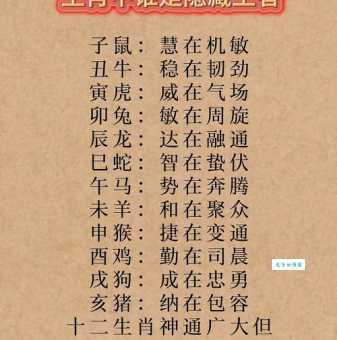 生肖中谁是隐藏王者
子鼠：慧在机敏
丑牛：稳在韧劲
寅虎：威在气场
卯兔：敏在周旋
辰龙：达在融通
巳蛇：智在蛰伏
午马：势在奔腾
未羊：和在聚众
申猴：捷在变通
酉鸡：勤在司晨
戌狗：成在忠勇
亥猪：纳在包容
十二生肖神通广大但